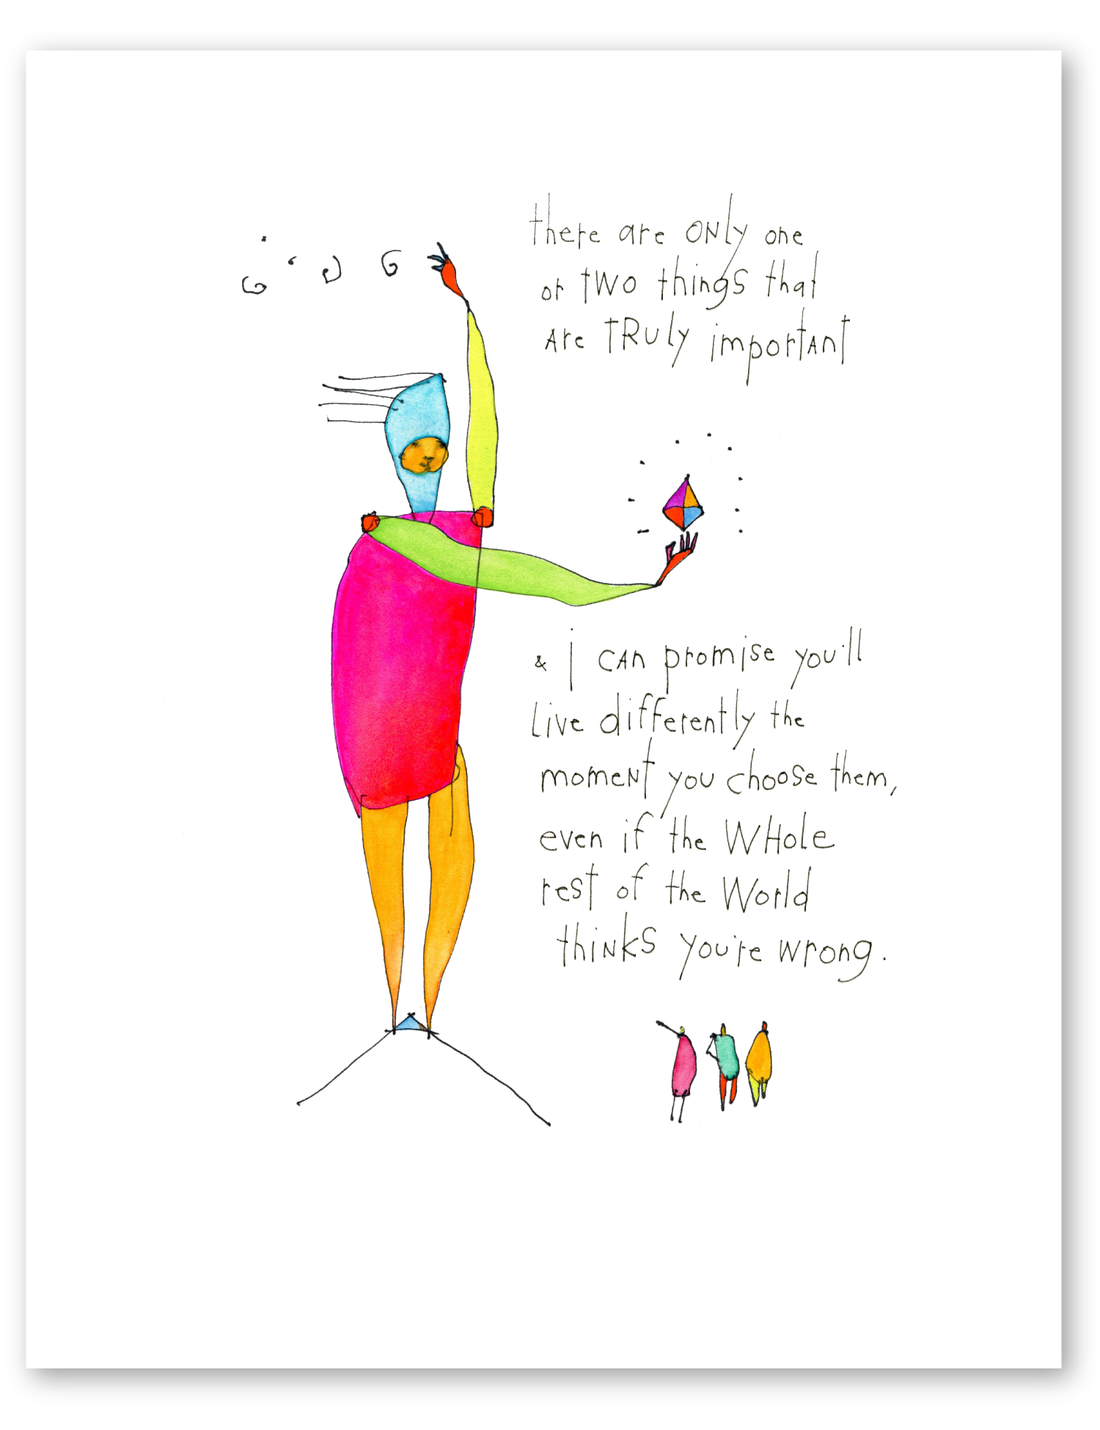 there are ONly one
or TWO things that
Are TRuly importAnt
& i cAn promise you'll
Live differently the
momeNt you choose them,
even if the WHole
rest of the World
thiNkS you're wrong.